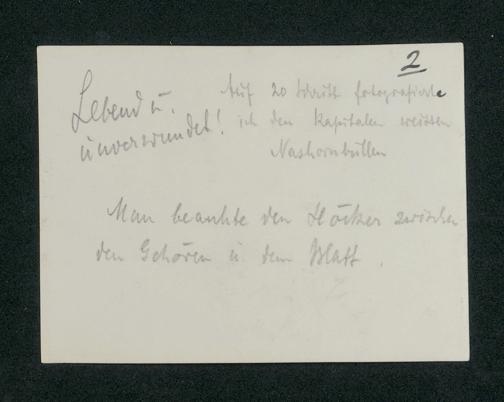 2
Lebend u.
unverwundet!
Auf 20 Schritt fotografierte
ich den kapitalen weissen
Nashornbullen
Man beachte den Höcker zwischen
den Gehören u dem Blatt.